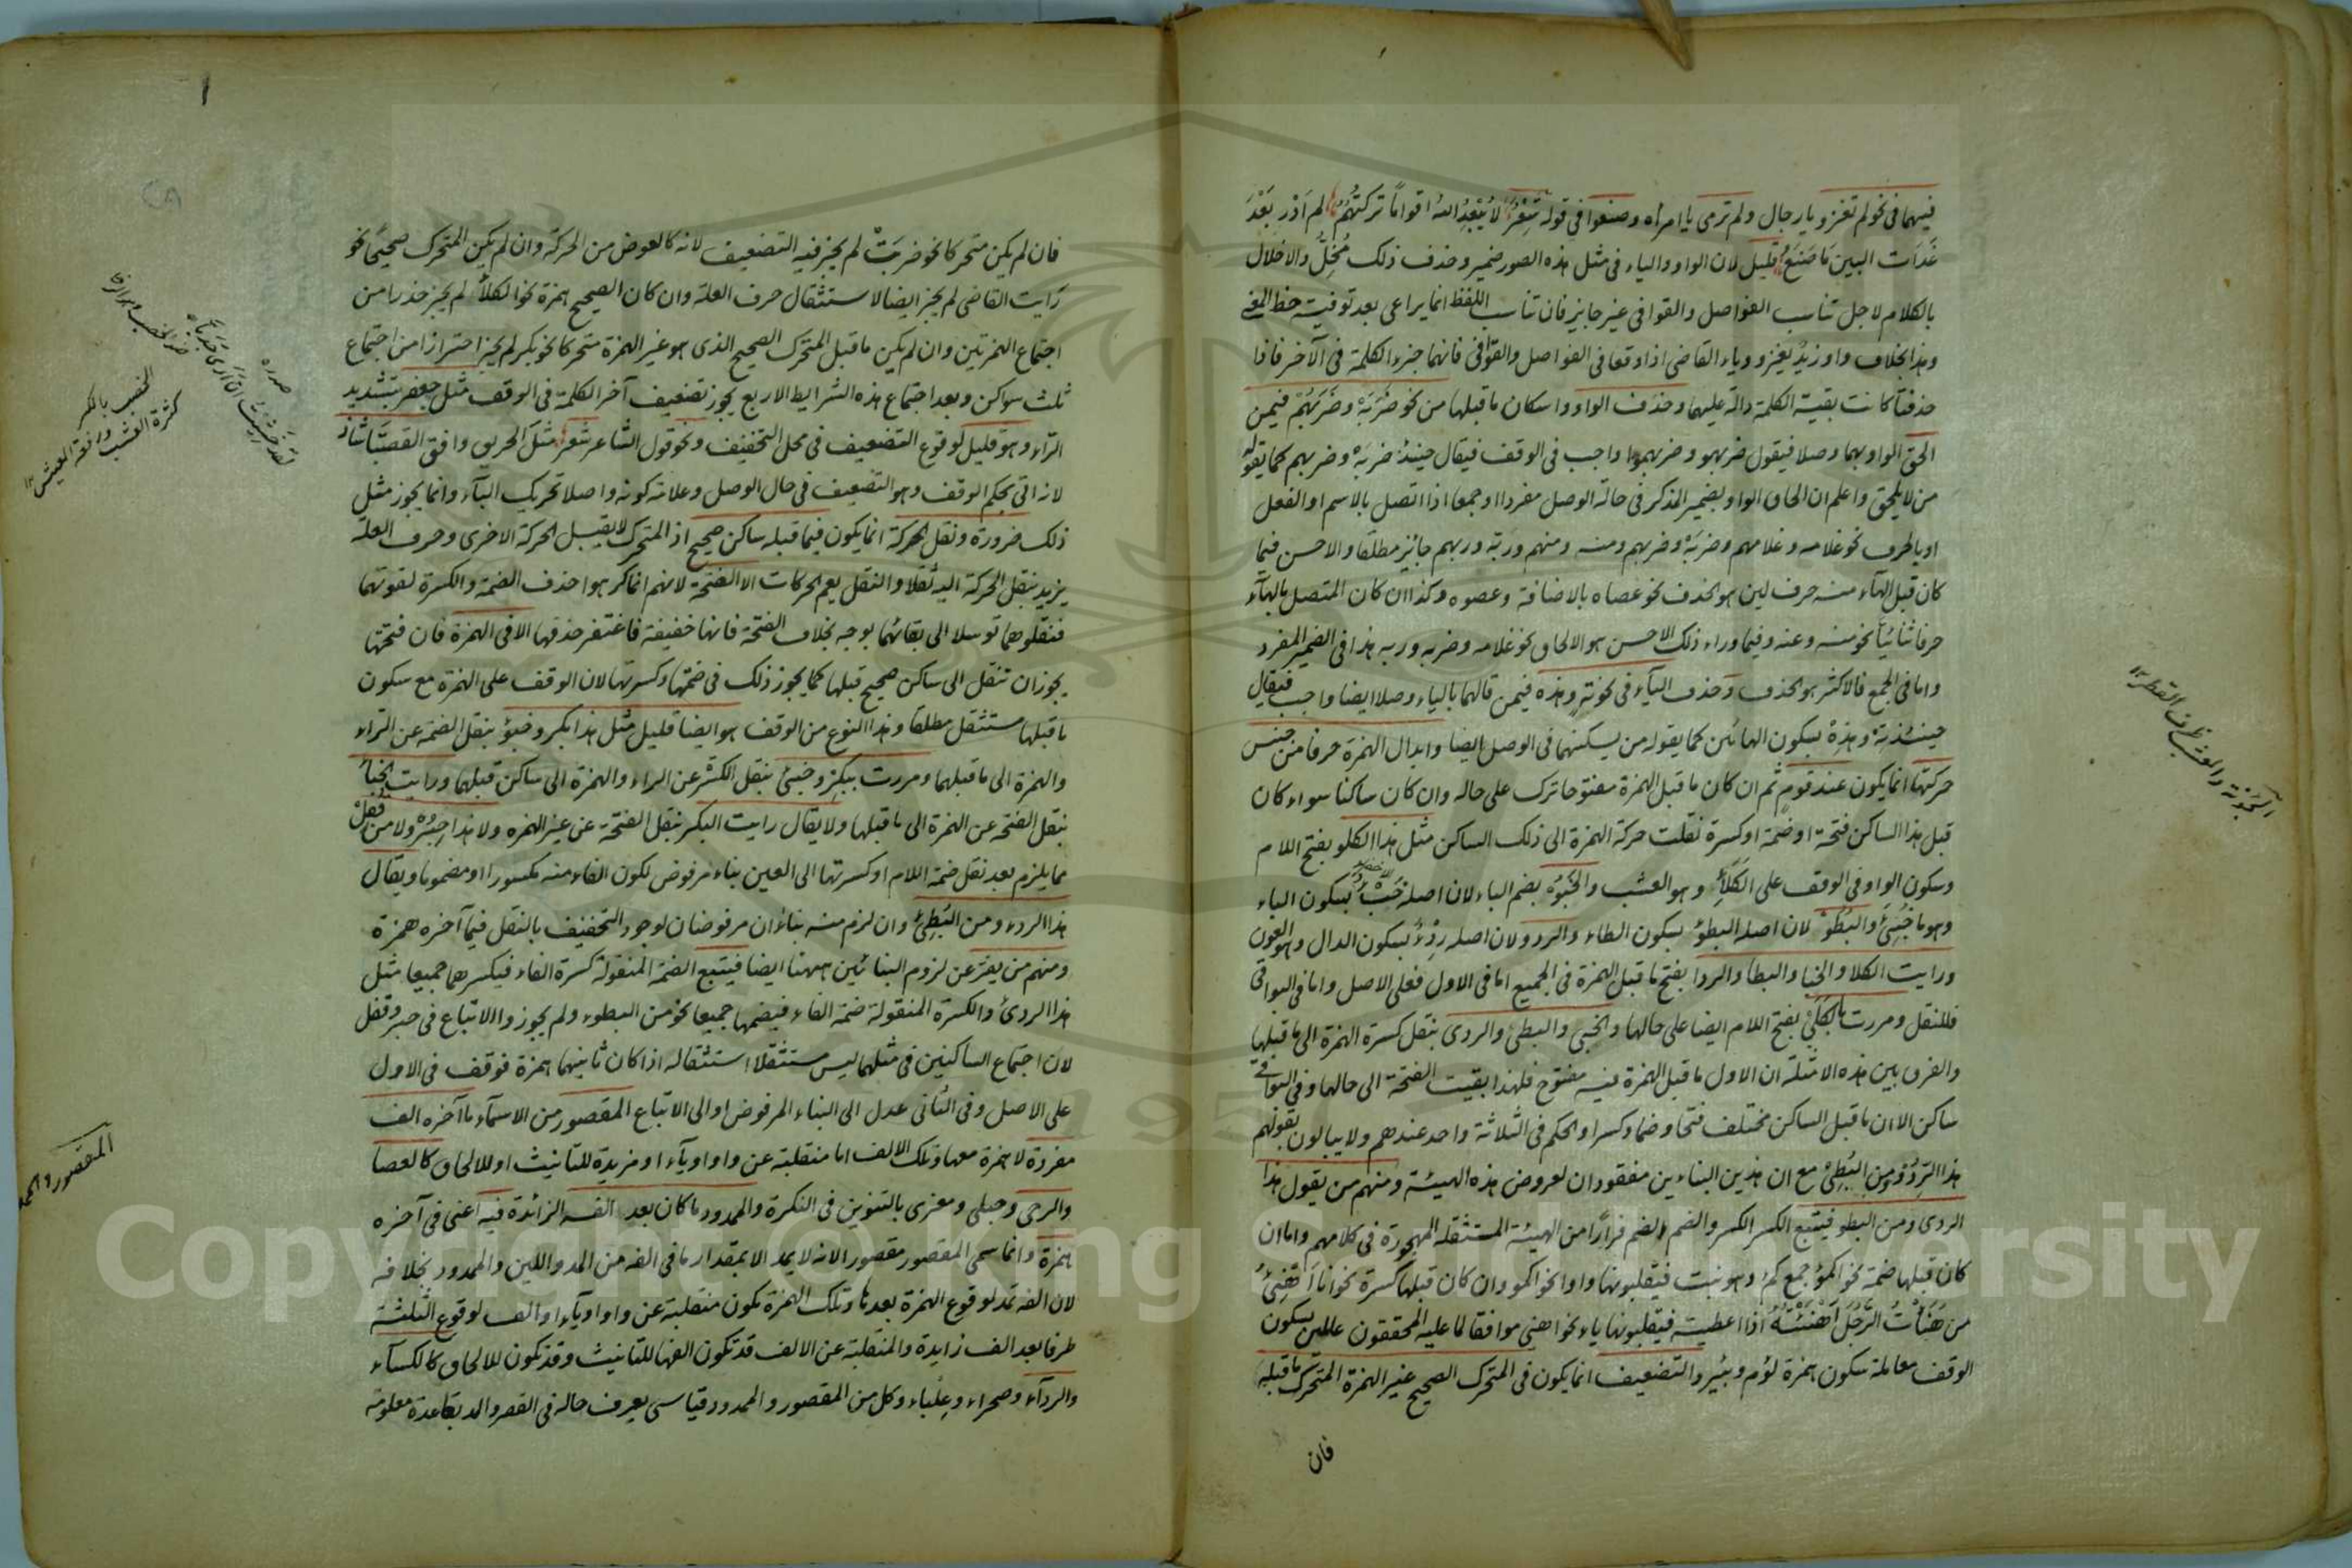 فيهما في نحو لم تغزو يا رجال ولم ترمى يا امراه وصنعوا في قوله شعر لا يُبْعِدُ الله اقواماً تركتهُمُ لم اَدْرِ بَعْدَ
غَدَات البين مَا صَنَعُ قليل لان الواو والياء في مثل هذه الصور ضمير وحذف ذلك مُخِلٌّ والاخلال
بالكلام لاجل تناسب الفواصل والقوافي غير جايز فان تناسب اللفظ انما يراعى بعد توفية حظ المعنى
وهذا بخلاف واو زيدٌ يغزو وياء القاضي اذا وقعا في الفواصل والقوافي فانهما جزء الكلمة في الآخر فاذا
حذفتا كانت بقية الكلمة دالّة عليهما وحذف الواو واسكان ما قبلها من نحو ضَرَبَهْ وضَرَبَهُمْ فيمن
الحق الواو بهما وصلا فيقول ضربهو وضربهموا واجب في الوقف فيقال حينئذ ضربَهْ وضربهم كما يقوله
من لا يلحق واعلم ان الحاق الواو بضمير المذكر في حالة الوصل مفردا او جمعا اذا اتصل بالاسم او الفعل
او بالحرف نحو غلامه وغلامهم وضربَهُ وضربهم ومنه ومنهم وربّه وربهم جايز مطلقا والاحسن فيما
كان قبل الهآء منه حرف لين هو الحذف نحو عصاه بالاضافة وعصوه وكذا ان كان المتصل بالهآء
حرفا ثنائيا نحو منه وعنه وفيما وراء ذلك الاحسن هو الالحاق نحو غلامه وضربه وربه هذا في الضمير المفرد
واما في الجمع فالاكثر هو الحذف وحذف اليآء في نحو تهِ وهذه فيمن قالهما بالياء وصلا ايضا واجب فيقال
حينئذ تهْ وهذِهْ بسكون الهائين كما يقوله من يسكنهما في الوصل ايضا وابدال الهمزة حرفا من جنس
حركتها انما يكون عند قوم ثم ان كان ما قبل الهمزة مفتوحا ترك على حاله وان كان ساكنا سواء كان
قبل هذا الساكن فتحة او ضمة او كسرة نقلت حركة الهمزة الى ذلك الساكن مثل هذا الكلو بفتح اللام
وسكون الواو في الوقف على الكَلَأِ وهو العشب والخَبُوْ بضم الباء لان اصله خَبْءٌ بسكون الباء
وهو ما خُبِئَ والبُطُوْ لان اصله البطؤ بسكون الطاء والردو لان اصله رِدْءٌ بسكون الدال وهو العون
ورايت الكلا والخبا والبطا والردا بفتح ما قبل الهمزة في الجميع اما في الاول فعلى الاصل واما في البواقي
فللنقل ومررت بالكَلَيْ بفتح اللام ايضا على حالها والخبي والبطي والردي بنقل كسرة الهمزة الى ما قبلها
والفرق بين هذه الامثلة ان الاول ما قبل الهمزة فيه مفتوح فلهذا بقيت الفتحة الى حالها وفي البواقي
ساكن الا ان ما قبل الساكن مختلف فتحا وضما وكسرا والحكم في الثلاثة واحد عندهم ولا يبالون بقولهم
هذا الرِدُوْ ومن البُطِيْ مع ان هذين البناءين مفقودان لعروض هذه الهيئة ومنهم من يقول هذا
الردي ومن البطو فيتبع الكسر الكسر والضم الضم فرارًا من الهيئة المستثقلة المهجورة في كلامهم واما ان
كان قبلها ضمة نحو اكمؤ جمع كمء وهو نبت فيقلبونها واوا نحو اكمو وان كان قبلها كسرة نحو انا اَهْنِئُ
من هَنَأْتُ الرَّجُلَ اَهْنَئُهُ اذا اعطيته فيقلبونها ياء نحو اهني موافقا لما عليه المحققون عاملين بسكون
الوقف معاملة سكون همزة لؤم وبئير والتضعيف انما يكون في المتحرك الصحيح غير الهمزة المتحرك ما قبله
فان
فان لم يكن متحركا نحو ضربَتْ لم يجز فيه التضعيف لانه كالعوض من الحركة وان لم يكن المتحرك صحيحًا نحو
رَايت القاضي لم يجز ايضا لاستثقال حرف العلة وان كان الصحيح همزة نحو الكلأ لم يجز حذرا من
اجتماع الهمزتين وان لم يكن ما قبل المتحرك الصحيح الذي هو غير الهمزة متحركا نحو بكر لم يجز احترازا من اجتماع
ثلث سواكن وبعد اجتماع هذه الشرايط الاربع يجوز تضعيف آخر الكلمة في الوقف مثل جعفر بتشديد
الرّاء وهو قليل لوقوع التضعيف في محل التخفيف ونحو قول الشاعر شعر مثل الحريق وافق القصبّا شاذ
لانه اتى بحكم الوقف وهو التضعيف في حال الوصل وعلامة كونه واصلا تحريك البآء وانما يجوز مثل
ذلك ضرورة ونقل الحركة انما يكون فيما قبله ساكن صحيح اذ المتحرك لا يقبل الحركة الاخرى وحرف العلة
يزيد بنقل الحركة اليه ثقلا والنقل يعم الحركات الا الفتحة لانهم انما كرهوا حذف الضمة والكسرة لقوتهما
فنقلوهما توسلا الى بقائهما بوجه بخلاف الفتحة فانها خفيفة فاغتفر حذفها الا في الهمزة فان فتحتها
يجوز ان تنقل الى ساكن صحيح قبلها كما يجوز ذلك في ضمتها وكسرتها لان الوقف على الهمزة مع سكون
ما قبلها مستثقل مطلقا وهذا النوع من الوقف هو ايضا قليل مثل هذا بكر وخبؤ بنقل الضمة عن الراء
والهمزة الى ما قبلهما ومررت ببكِرْ وخبئ بنقل الكسرة عن الراء والهمزة الى ساكن قبلهما ورايت الخبأ
بنقل الفتحة عن الهمزة الى ما قبلها ولا يقال رايت البكر بنقل الفتحة عن غير الهمزه ولا هذا حِبُرْ ولا من قفل
مما يلزم بعد نقل ضمة اللام او كسرتها الى العين بناء مرفوض لكون الفاء منه مكسورا او مضموما ويقال
هذا الردء ومن البُطِئْ وان لزم منه بناءان مرفوضان لوجود التخفيف بالنقل فيما آخره همزة
ومنهم من يفرّ عن لزوم البنائين ههنا ايضا فيتبع الضمة المنقولة كسرة الفاء فيكسرهما جميعا مثل
هذا الردئ والكسرة المنقولة ضمة الفاء فيضمها جميعا نحو من البطوء ولم يجوزوا الاتباع في حبر وقفل
لان اجتماع الساكنين في مثلهما ليس مستثقلا استثقاله اذا كان ثانيهما همزة فوقف في الاول
على الاصل وفي الثاني عدل الى البناء المرفوض او الى الاتباع المقصور من الاسمآء ما آخره الف
مفردة لا همزة معها وتلك الالف اما منقلبة عن واو او يآء او مزيدة للتانيث او للالحاق كالعصا
والرحى وحبلى ومعزى بالتنوين في النكرة والممدود ما كان بعد الفه الزائدة فيه اعنى في آخره
همزة وانما سمى المقصور مقصورا لانه لا يمد الا بمقدار ما في الفه من المد واللين والممدود بخلافه
لان الفه تمد لوقوع الهمزة بعدها وتلك الهمزة تكون منقلبة عن واو او يآء او الف لوقوع الثلثة
طرفا بعد الف زايدة والمنقلبة عن الالف قد تكون الفها للتانيث وقد تكون للالحاق كالكسآء
والردآء وصحراء وعِلْباء وكل من المقصور والممدود قياسي يعرف حاله في القصر والمد بقاعدة معلومة
صدره
لقد خشيت ان ارى جدبّا
الخصب بالكسر
كثرة العشب
المقصور والممدود
Copyright © King Saud University
1957